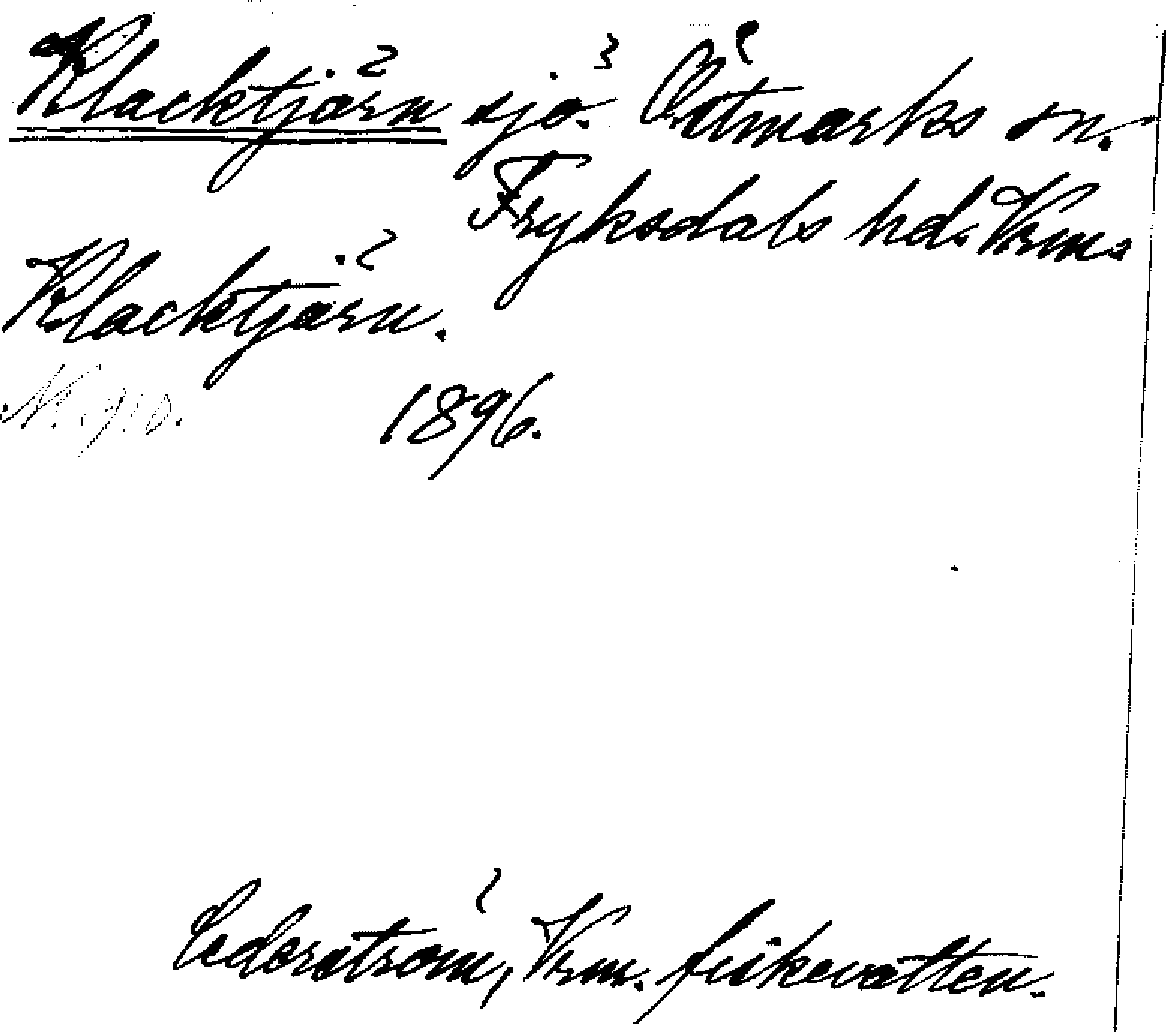 Klacktjärn sjö. Östmarks sn.
Fryksdals hd. Vrm.
Klacktjärn.
1896.
Cederström, Vrm. fiskevatten.